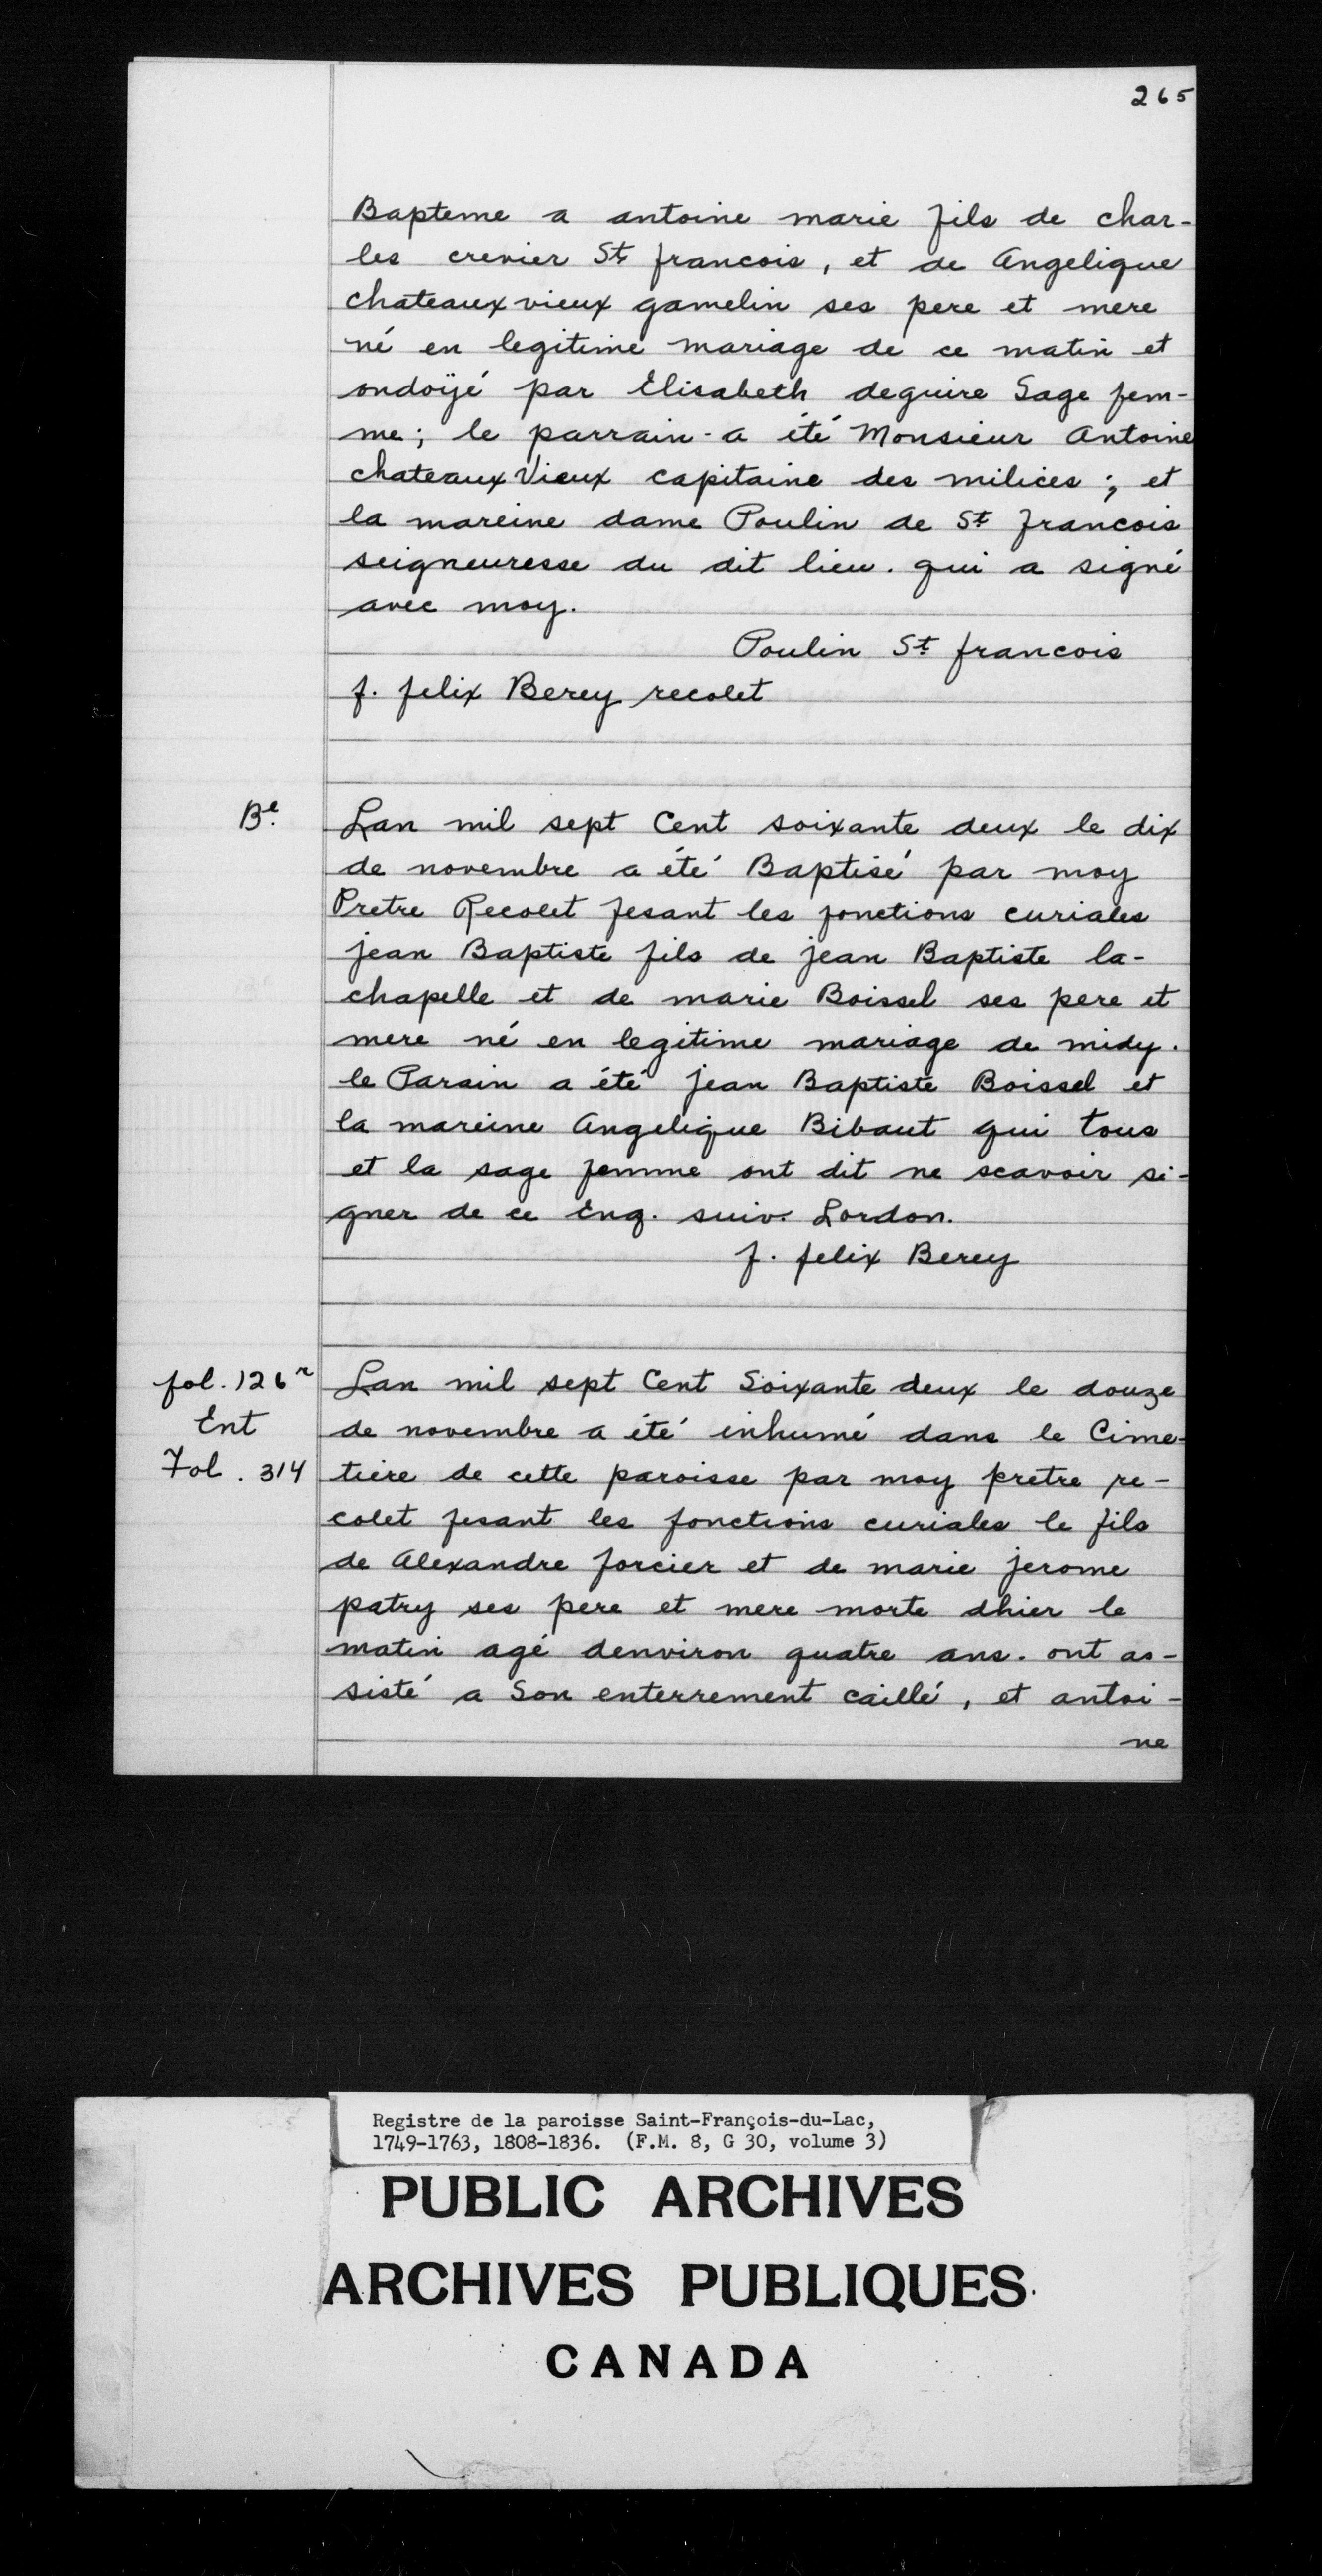 265
Bapteme a antoine marie fils de char-
les crevier St francois, et de Angelique
chateaux vieux gamelin ses pere et mere
né en legitime mariage de ce matin et
ondoÿé par Elisabeth deguire Sage fem-
me; le parrain a été Monsieur Antoine
chateaux Vieux capitaine des milices; et
la mareine dame Poulin de St francois
seigneuresse du dit lieu. qui a signé
avec moy.
Poulin St francois
f. felix Berey recolet
Be. Lan mil sept Cent soixante deux le dix
de novembre a été Baptisé par moy
Pretre Recolet fesant les fonctions curiales
jean Baptiste fils de jean Baptiste la-
chapelle et de marie Boissel ses pere et
mere né en legitime mariage de midy.
le Parain a été jean Baptiste Boissel et
la mareine Angelique Bibaut qui tous
et la sage femme ont dit ne scavoir si-
gner de ce Enq. suiv. Lordon.
f. felix Berey
fol. 126r Lan mil sept Cent Soixante deux le douze
Ent de novembre a été inhumé dans le Cime-
Fol. 314 tiere de cette paroisse par moy pretre re-
colet fesant les fonctions curiales le fils
de Alexandre forcier et de marie jerome
patry ses pere et mere morte dhier le
matin agé denviron quatre ans. ont as-
sisté a Son enterrement caillé, et antoi-
ne
Registre de la paroisse Saint-François-du-Lac,
1749-1763, 1808-1836. (F.M. 8, G 30, volume 3)
PUBLIC ARCHIVES
ARCHIVES PUBLIQUES
CANADA